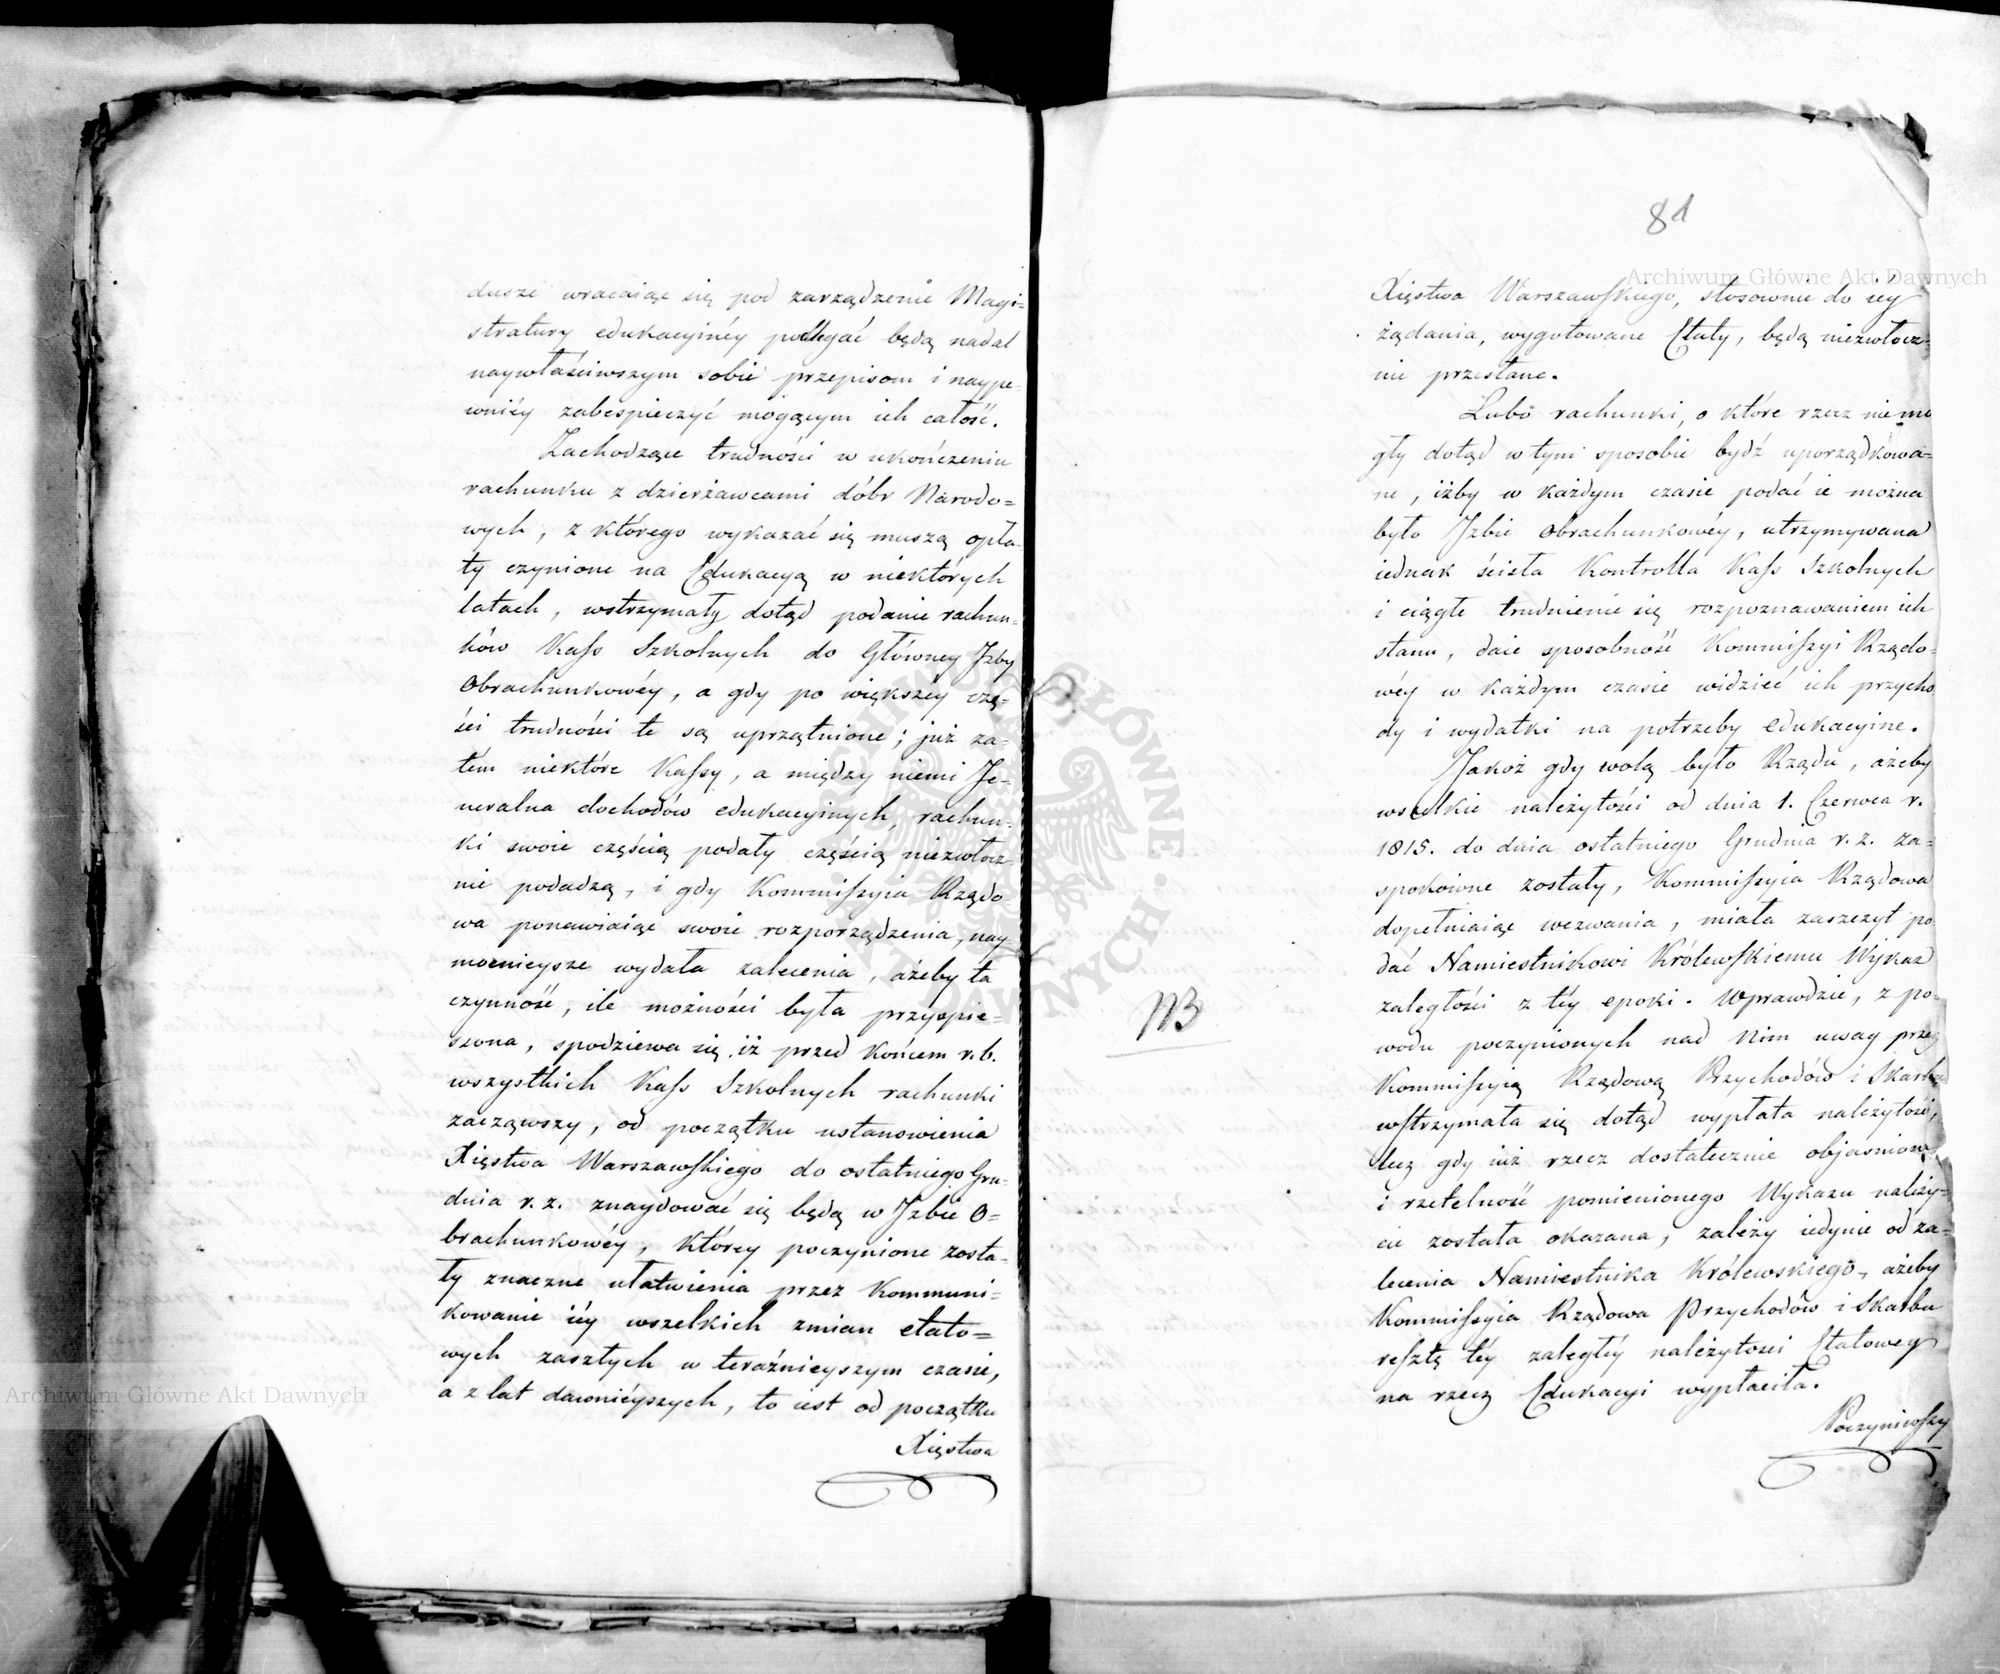 dusze wracaiąc się pod zarządzenie Magi=
stratury edukacyinéy podlegać będą nadal
naywłaściwszym sobie przepisom i naype=
wniéy zabespieczyć mogącym ich całość.
Zachodzące trudności w ukończeniu
rachunku z dzierżawcami dóbr Narodo=
wych, z którego wykazać się muszą opła=
ty czynione na Edukacyą w niektórych
latach, wstrzymały dotąd podanie rachun=
ków Kass Szkolnych do Główney Izby
Obrachunkowéy, a gdy po większéy czę=
ści trudności te są uprzątnione; już za=
tém niektóre Kassy, a między niemi Je=
neralna dochodów edukacyinych, rachun=
ki swoie częścią podały częścią niezwłocz=
nie podadzą, i gdy Kommissyia Rządo=
wa ponawiaiąc swoie rozporządzenia, nay=
mocnieysze wydała zalecenia, ażeby ta
czynność, ile możności była przyspie=
szona, spodziewa się iż przed końcem r.b.
wszystkich Kass Szkolnych rachunki
zacząwszy, od początku ustanowienia
Xięstwa Warszawskiego do ostatniego Gru=
dnia r. z. znaydować się będą w Izbie O=
brachunkowéy, którey poczynione zosta=
ły znaczne ułatwienia przez Kommuni=
kowanie iéy wszelkich zmian etato=
wych zaszłych w teraźnieyszym czasie,
a z lat dawniéyszych, to iest od początku
Xięstwa
81
Xięstwa Warszawskiego, stosownie do iey
żądania, wygotowane Etaty, będą niezwłocz=
nie przesłane.
Lubo rachunki, o które rzecz nie mo
gły dotąd w tym sposobie bydź uporządkowa=
ne, iżby w każdym czasie podać ie można
było Izbie Obrachunkowéy, utrzymywana
iednak ścisła Kontrolla Kass Szkolnych
i ciągłe trudnienie się rozpoznawaniem ich
stanu, daie sposobność Kommissyi Rządo=
wéy w każdym czasie widzieć ich przycho
dy i wydatki na potrzeby edukacyine.
Jakoż gdy wolą było Rządu, ażeby
wszelkie należytości od dnia 1. Czerwca r.
1815. do dnia ostatniego Grudnia r. z. za=
spokoione zostały, Kommissyia Rządowa
dopełniaiąc wezwania, miała zaszczyt po
dać Namiestnikowi Królewskiemu Wykaz
zaległości z téy epoki. Wprawdzie, z po=
wodu poczynionych nad Nim uwag przez
Kommissyią Rządową Przychodów i Skarbu
wstrzymała się dotąd wypłata należytości,
lecz gdy iuż rzecz dostatecznie obiaśniona
i rzetelność pomienionego Wykazu należy=
cie została okazana, zależy iedynie od za=
lecenia Namiestnika Królewskiego, ażeby
Kommissyia Rządowa Przychodów i Skarbu
resztę téy zaległéy należytości Etatowey
na rzecz Edukacyi wypłaciła.
Poczyniwszy
NB
Archiwum Główne Akt Dawnych
Archiwum Główne Akt Dawnych
ARCHIWUM GŁÓWNE AKT DAWNYCH